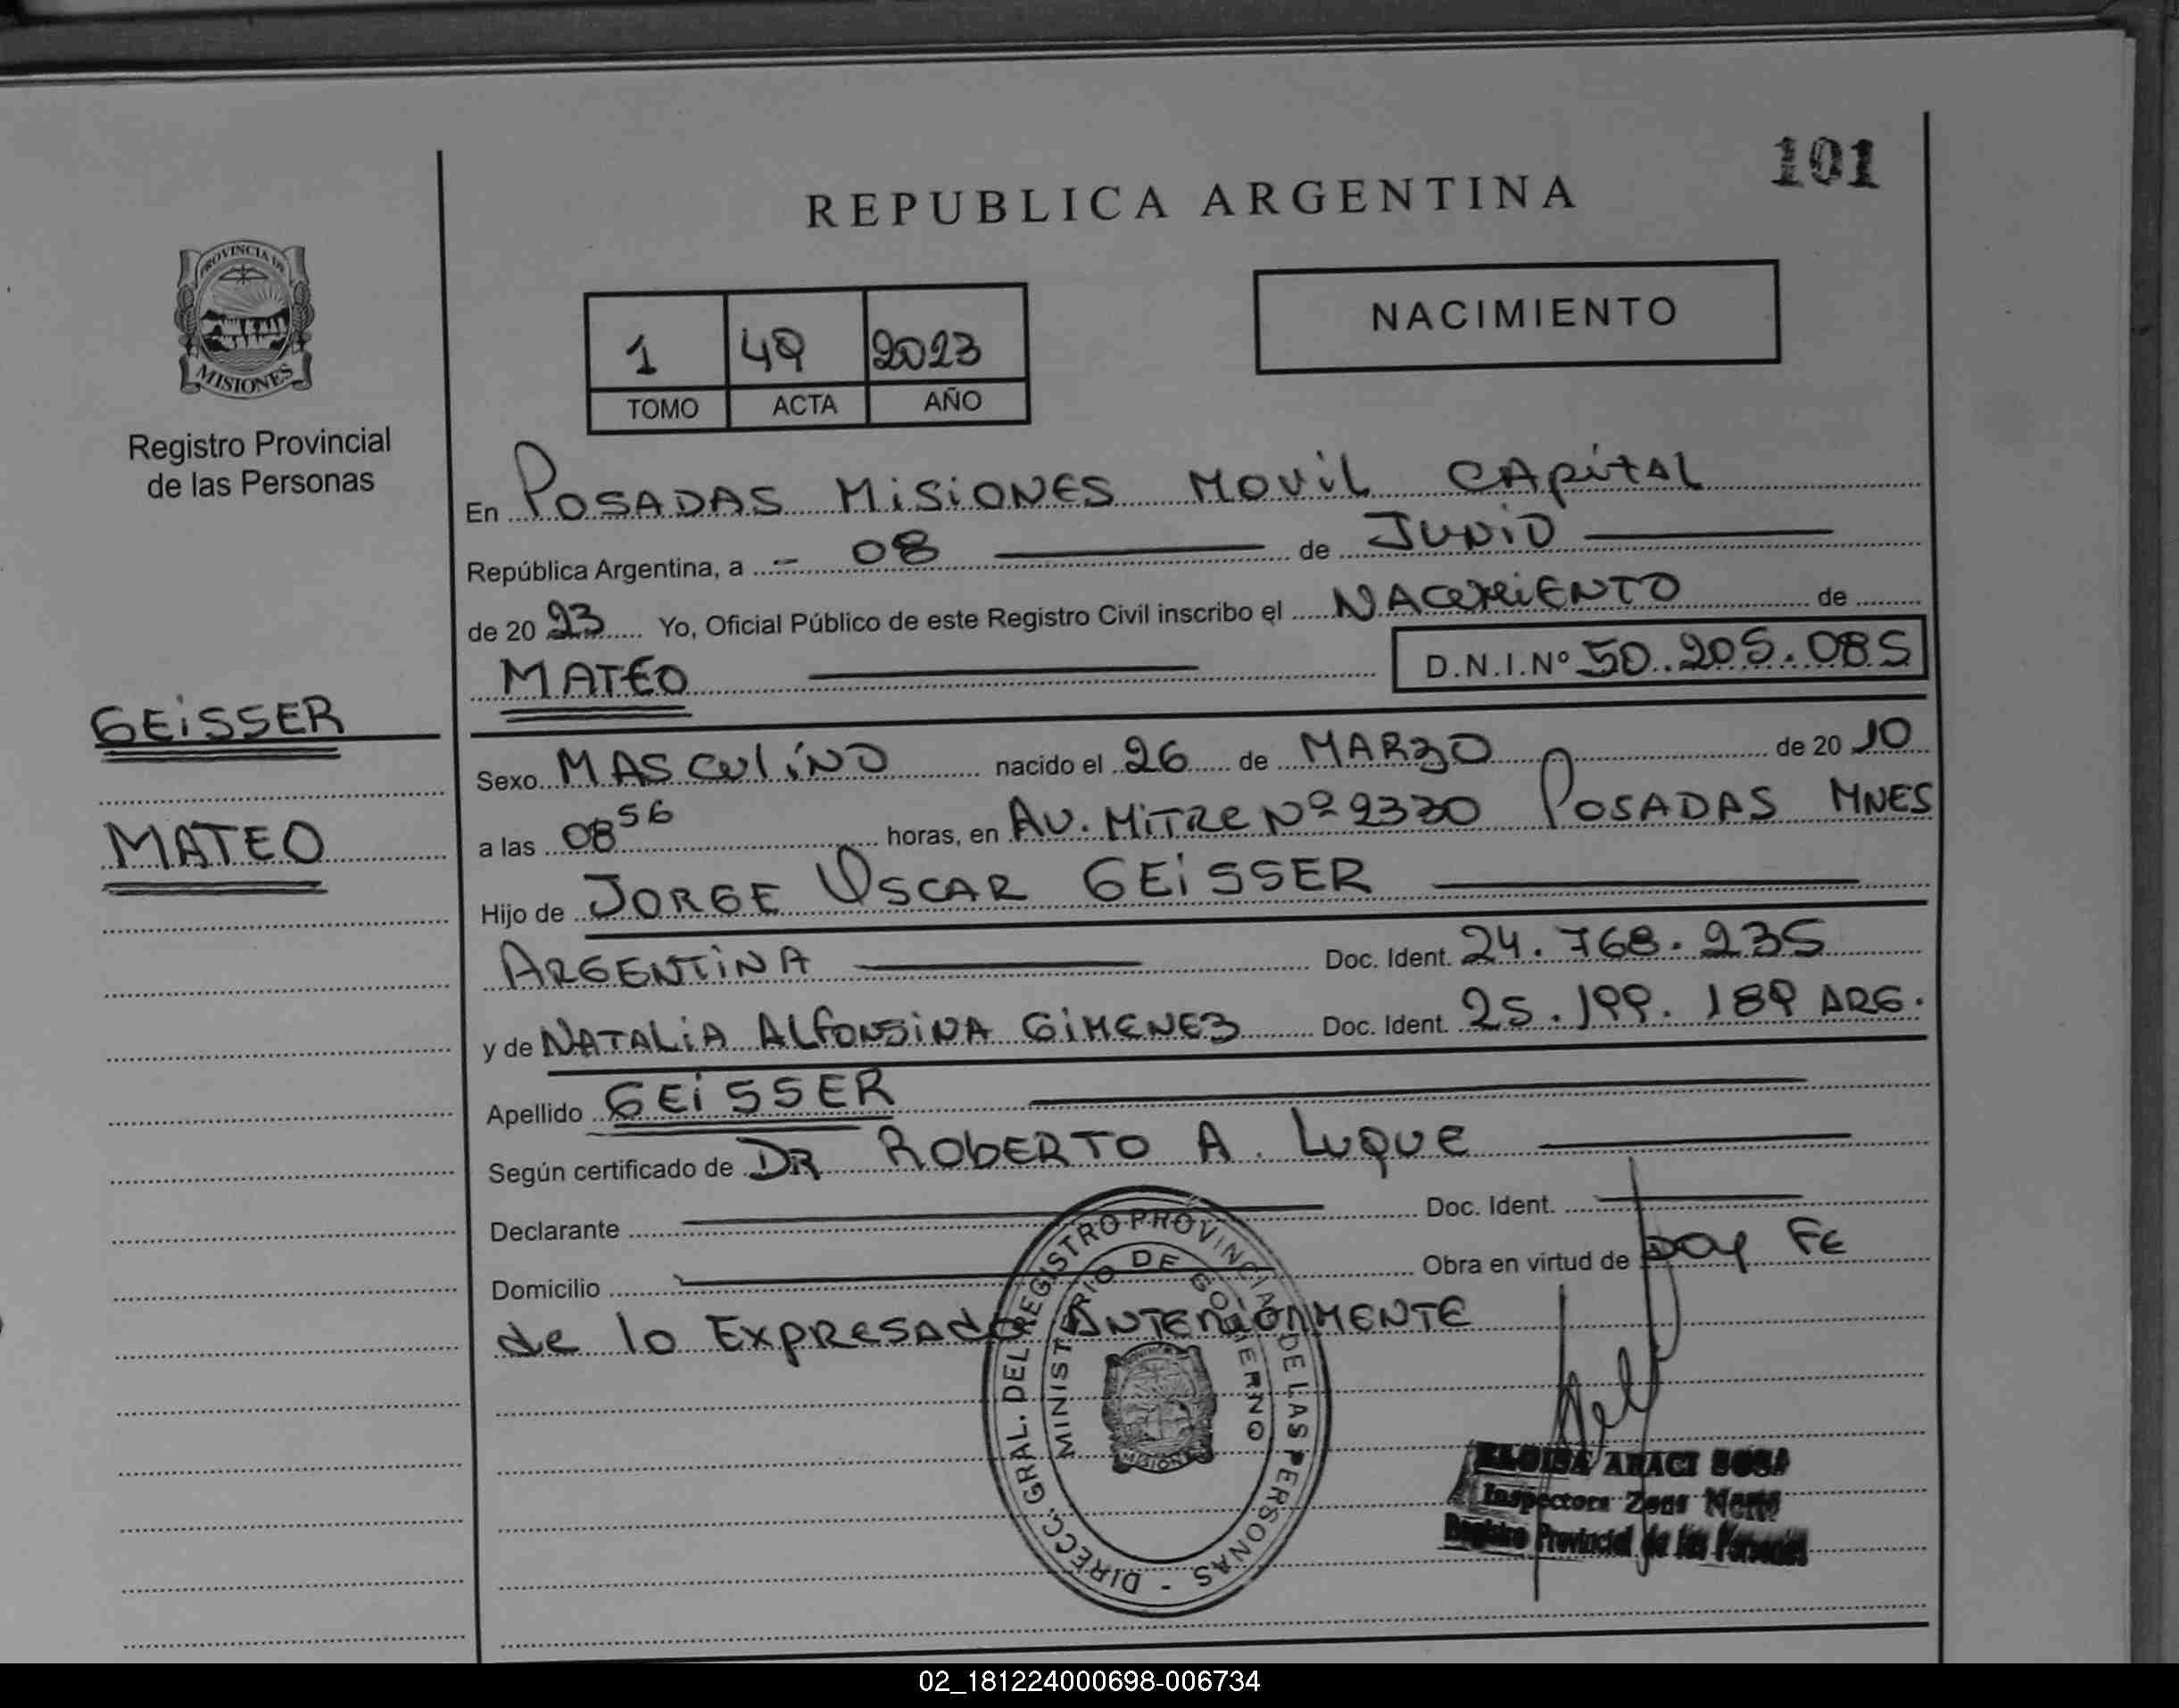 101
REPUBLICA ARGENTINA
PROVINCIA DE
MISIONES
Registro Provincial
de las Personas
1 49 2023
TOMO ACTA AÑO
NACIMIENTO
En POSADAS MISIONES MOVIL CAPITAL
República Argentina, a 08 de JUNIO
de 20 23 Yo, Oficial Público de este Registro Civil inscribo el NACIMIENTO de
MATEO D.N.I.Nº 50.205.085
GEISSER
MATEO
Sexo MASCULINO nacido el 26 de MARZO de 20 10
a las 08 56 horas, en AV. MITRE Nº 2330 POSADAS MNES
Hijo de JORGE OSCAR GEISSER
ARGENTINA Doc. Ident. 24.768.235
y de NATALIA ALFONSINA GIMENEZ Doc. Ident. 25.199.189 ARG.
Apellido GEISSER
Según certificado de DR ROBERTO A. LUQUE
Declarante Doc. Ident.
Domicilio Obra en virtud de DOY FE
de lo EXPRESADO ANTERIORMENTE
DIRECC. GRAL. DEL REGISTRO PROVINCIAL DE LAS PERSONAS -
MINISTERIO DE GOBIERNO
MISIONES
ARACI SOSA
Inspectora Zona Norte
Registro Provincial de las Personas
02_181224000698-006734